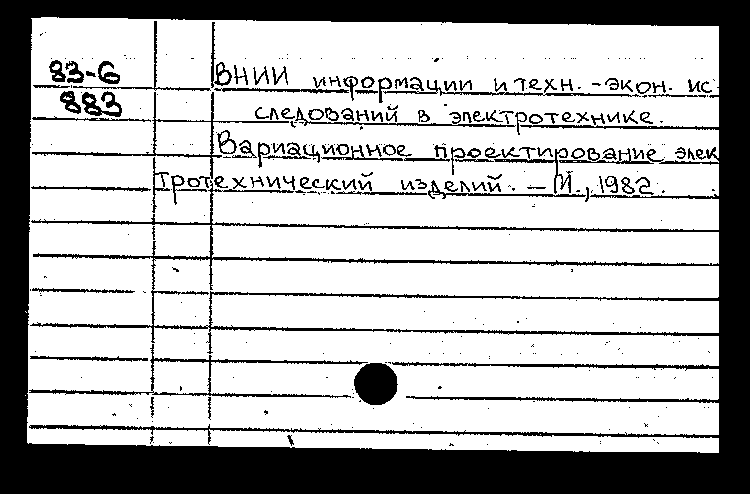 83-6 ВНИИ информации и техн.-экон. ис
883 следований в электротехнике.
Вариационное проектирование элек
тротехнический изделий. – М., 1982.